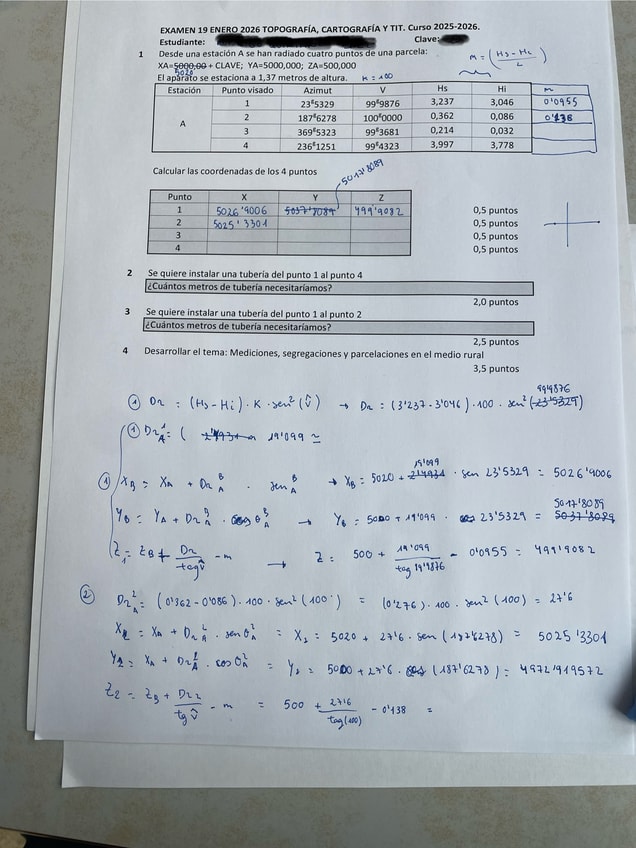 EXAMEN 19 ENERO 2026 TOPOGRAFÍA, CARTOGRAFÍA Y TIT. Curso 2025-2026.
Estudiante: Clave:
1 Desde una estación A se han radiado cuatro puntos de una parcela:
m = (Hs - Hi / 2)
XA=5000,00 + CLAVE; YA=5000,000; ZA=500,000
5020
El aparato se estaciona a 1,37 metros de altura. K = 100
Estación Punto visado Azimut V Hs Hi m
A
1 23g5329 99g9876 3,237 3,046 0'0955
2 187g6278 100g0000 0,362 0,086 0'138
3 369g5323 99g3681 0,214 0,032
4 236g1251 99g4323 3,997 3,778
Calcular las coordenadas de los 4 puntos
5017'8089
Punto X Y Z
1 5026'9006 5037'8089 499'9082 0,5 puntos
2 5025'3301 0,5 puntos
3 0,5 puntos
4 0,5 puntos
2 Se quiere instalar una tubería del punto 1 al punto 4
¿Cuántos metros de tubería necesitaríamos?
2,0 puntos
3 Se quiere instalar una tubería del punto 1 al punto 2
¿Cuántos metros de tubería necesitaríamos?
2,5 puntos
4 Desarrollar el tema: Mediciones, segregaciones y parcelaciones en el medio rural
3,5 puntos
99'9876
① Dr = (Hs - Hi) · K · sen² (V̂) → Dr = (3'237 - 3'046) · 100 · sen² (23'5329)
① Dr A 1 = ( 19'099 ≃
19'099
① XB = XA + Dr A B · sen A B → XB = 5020 + · sen 23'5329 = 5026'9006
5017'8089
YB = YA + Dr A B · cos θ A B → YB = 5000 + 19'099 · cos 23'5329 = 5037'8089
Z1 = ZB + Dr / tag v̂ - m → Z = 500 + 19'099 / tag 99'9876 - 0'0955 = 499'9082
② Dr A 2 = (0'362 - 0'086) · 100 · sen² (100) = (0'276) · 100 · sen² (100) = 27'6
X2 = XA + Dr A 2 · sen θ A 2 = X2 = 5020 + 27'6 · sen (187'6278) = 5025'3301
Y2 = YA + Dr A 2 · cos θ A 2 = Y2 = 5000 + 27'6 · cos (187'6278) = 4972'919572
Z2 = ZB + Dr2 / tg v̂ - m = 500 + 27'6 / tag (100) - 0'138 =